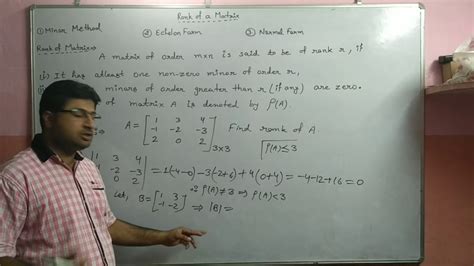 Rank of a Matrix
① Minor Method ② Echelon Form ③ Normal Form
Rank of Matrix→
A matrix of order m×n is said to be of rank r, if
(i) It has atleast one non-zero minor of order r,
minors of order greater than r (if any) are zero.
of matrix A is denoted by ρ(A).
A = [1 3 4
-1 -2 -3
2 0 2]3×3 Find rank of A
ρ(A)≤3
1 3 4
-2 -3
0 2 = 1(-4-0)-3(-2+6)+4(0+4) = -4-12+16=0
ρ(A)≠3 ⇒ ρ(A)<3
Let, B = [1 3
-1 -2] ⇒ |B| =